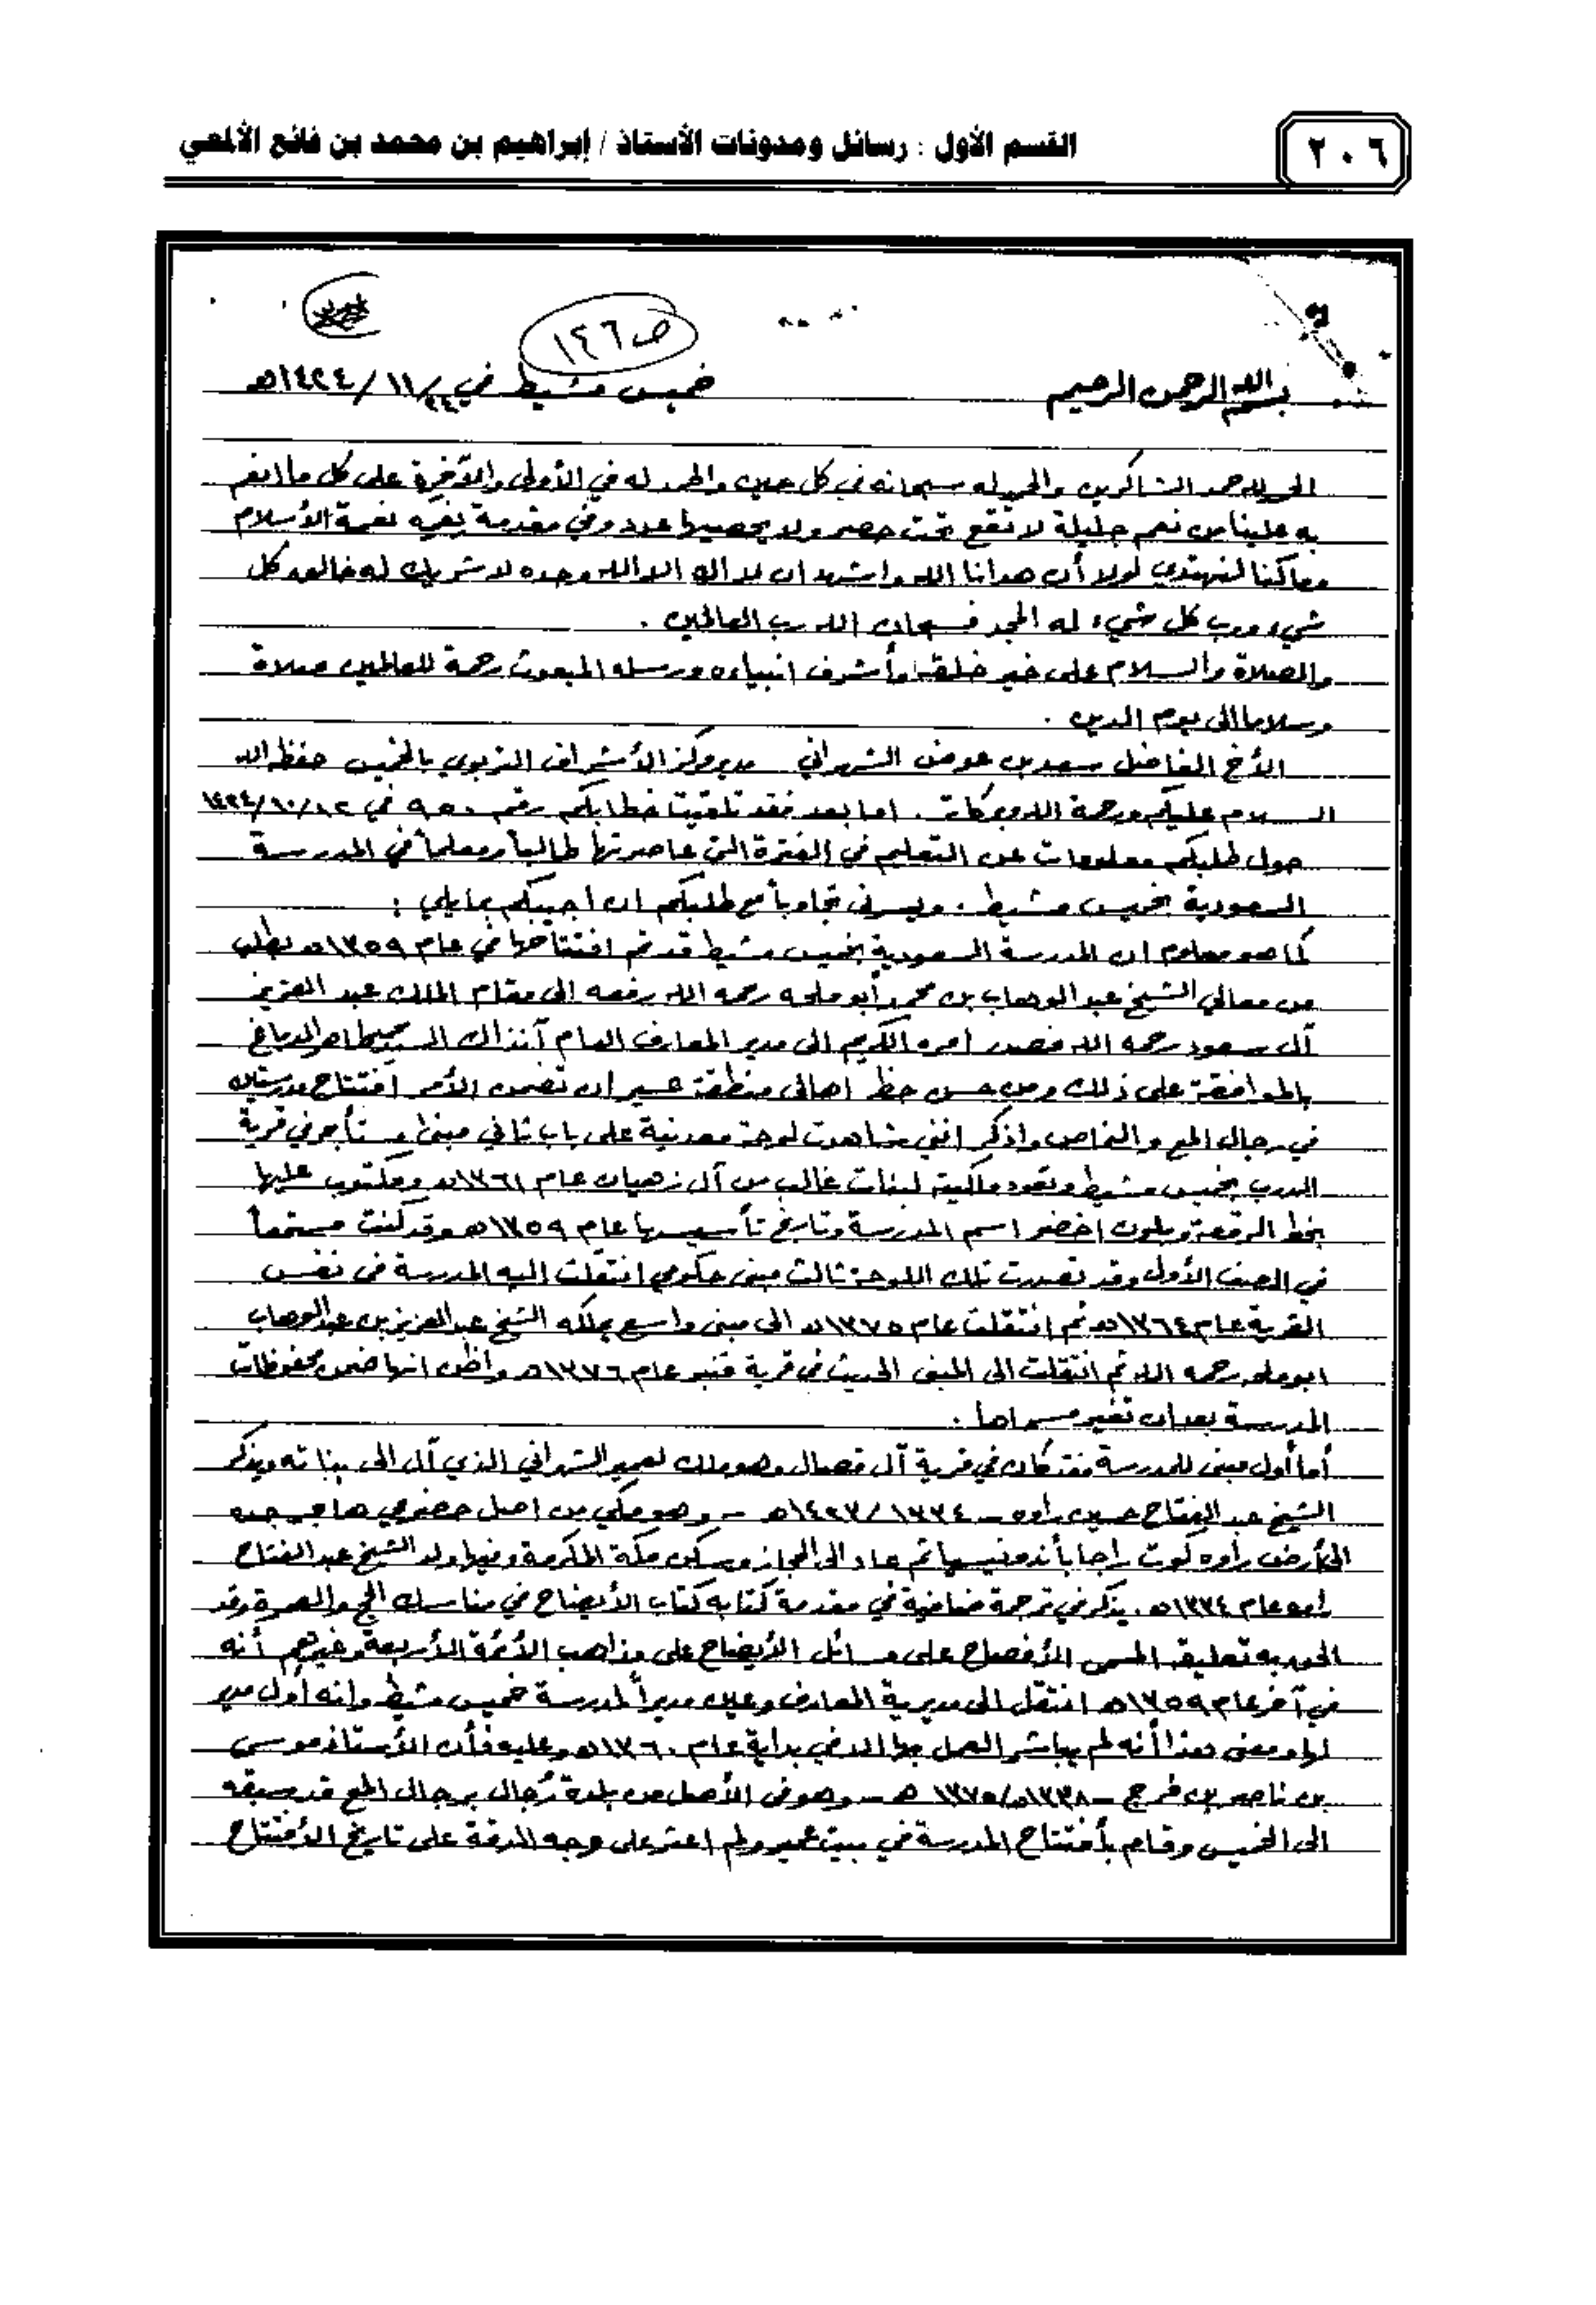 ٢٠٦
القسم الأول : رسائل ومدونات الأستاذ / إبراهيم بن محمد بن فائع الألمعي
ص ١٤٦
بسم الله الرحمن الرحيم
خميس مشيط في ٢٤/١١/١٤٢٤هـ
الحمد لله حمد الشاكرين والحمد له سبحانه في كل حين والحمد له في الأولى والآخرة على كل ما انعم
به علينا من نعم جليلة لا تقع تحت حصر ولا يحصيها عدد وفي مقدمة نعمه نعمة الأسلام
وماكنا لنهتدي لولا أن هدانا الله واشهد ان لا اله الا الله وحده لا شريك له خالق كل
شيء ورب كل شيء له الحمد فسبحان الله رب العالمين .
والصلاة والسلام على خير خلقه وأشرف انبياءه ورسله المبعوث رحمة للعالمين صلاة
وسلاما الى يوم الدين .
الأخ الفاضل سعد بن عوض الشهراني مدير مركز الأشراف التربوي بالخميس حفظه الله
السلام عليكم ورحمة الله وبركاته . اما بعد فقد تلقيت خطابكم رقم ٩٥٠ في ١٢/١٠/١٤٢٤
حول طلبكم معلومات عن التعليم في الفترة التي عاصرتها طالباً ومعلماً في المدرسة
السعودية بخميس مشيط . ويسرني تجاوباً مع طلبكم ان اجيبكم بما يلي :
كما هو معلوم ان المدرسة السعودية بخميس مشيط قد تم افتتاحها في عام ١٣٥٩هـ بطلب
من معالي الشيخ عبد الوهاب بن محمد أبو ملحه رحمه الله رفعه الى مقام الملك عبد العزيز
آل سعود رحمه الله فصدر امره الكريم الى مدير المعارف العام آنذاك السيد طاهر الدباغ
بالموافقة على ذلك ومن حسن حظ اهالي منطقة عسير ان تضمن الأمر افتتاح مدرستين
في رجال المع والنماص واذكر انني شاهدت لوحة معدنية على باب ثاني مبنى مستأجر في قرية
الدرب بخميس مشيط وتعود ملكيته لبنات غالب من آل زهيان عام ١٣٦١هـ ومكتوب عليها
بخط الرقعة وبلون اخضر اسم المدرسة وتاريخ تأسيسها عام ١٣٥٩هـ وقد كنت مستمعاً
في الصف الأول وقد تصدرت تلك اللوحة ثالث مبنى حكومي انتقلت اليه المدرسة في نفس
القرية عام ١٣٦٤هـ ثم انتقلت عام ١٣٧٥هـ الى مبنى واسع يملكه الشيخ عبد العزيز بن عبد الوهاب
ابو ملحه رحمه الله ثم انتقلت الى المبنى الحديث في قرية قنبر عام ١٣٧٦هـ واظن انها ضمن محفوظات
المدرسة بعد ان تغير مسماها .
أما أول مبنى للمدرسة فقد كان في قرية آل قصال وهو ملك لعمير الشهراني الذي آل الى بناته ويذكر
الشيخ عبد الفتاح حسين راوه – ١٣٣٤/١٤٢٣هـ – وهو مكي من اصل حضرمي هاجر جده
الى أرض راوه كوت راجا بأندونيسيا ثم عاد الى الحجاز وسكن مكة المكرمة وفيها ولد الشيخ عبد الفتاح
راوه عام ١٣٣٤هـ . يذكر في ترجمة ضافية في مقدمة كتابه كتاب الأيضاح في مناسك الحج والعمرة وقد
الحق به تعليقه المسمى الأفصاح على مسائل الأيضاح على مذاهب الأئمة الأربعة وغيرهم أنه
في آخر عام ١٣٥٩هـ انتقل الى مديرية المعارف وعين مديراً لمدرسة خميس مشيط وانه أول مدير
لها ومعنى هذا أنه لم يباشر العمل بها الا في بداية عام ١٣٦٠هـ وعليه فأن الأستاذ موسى
بن ناصر بن فرج – ١٣٣٨هـ/١٣٧٥هـ – وهو في الأصل من بلدة رُجال برجال المع قد سبقه
الى الخميس وقام بأفتتاح المدرسة في بيت عمير ولم اعثر على وجه الدقة على تاريخ الأفتتاح